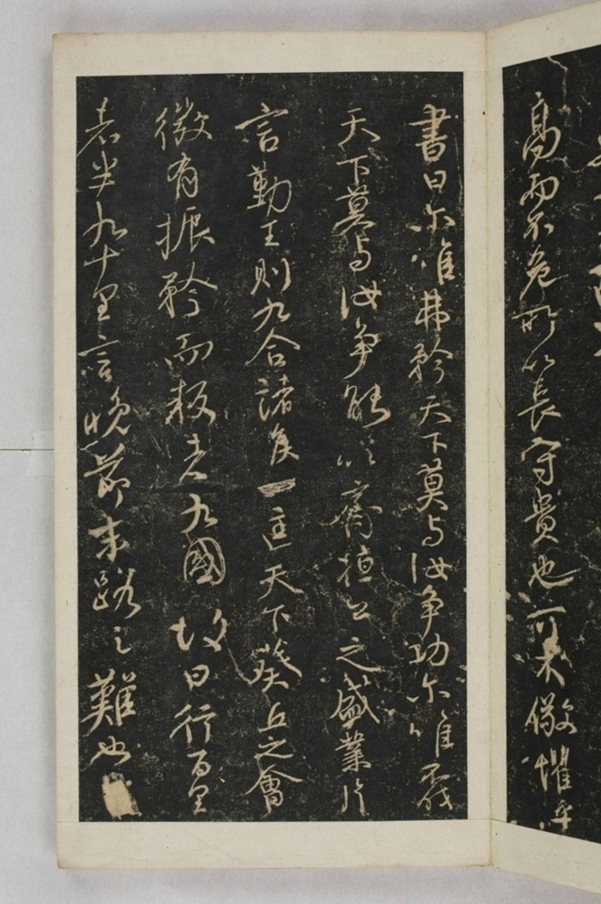 高而不危所以長守貴也可不儆懼乎
書曰尓唯弗矜天下莫与汝争功尓唯不伐
天下莫与汝争能以齊桓公之盛業片
言勤王則九合諸侯一匡天下葵丘之會
微有振矜而叛者九國故曰行百里
者半九十里言晚節末路之難也